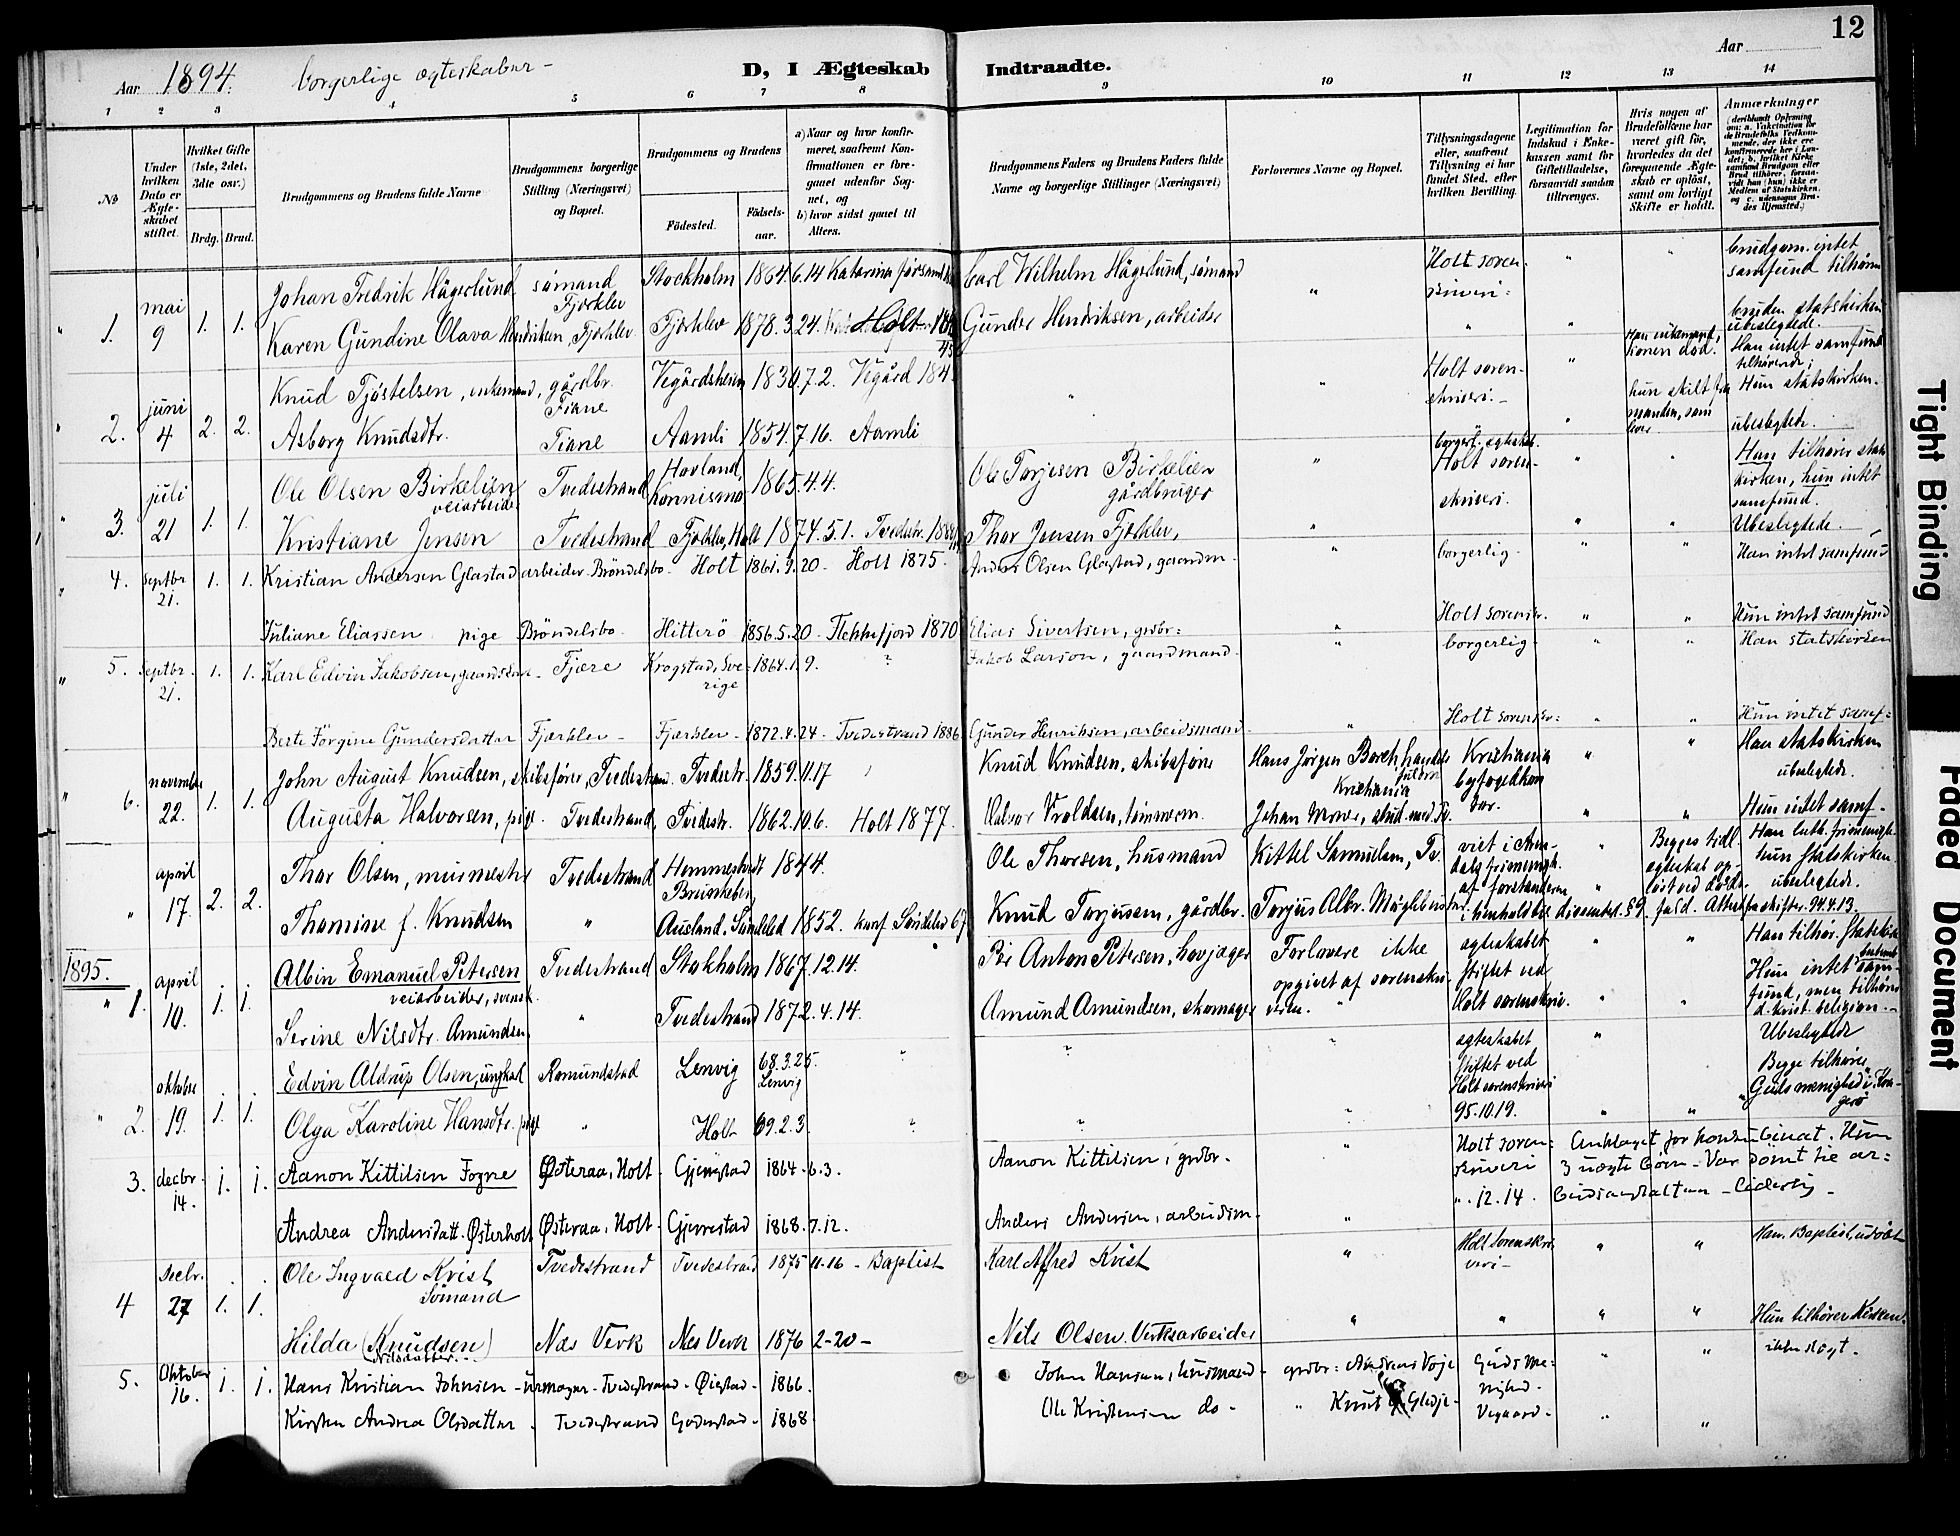 12
Aar 1894. borgerlige ægteskaber - D, I Ægteskab Indtraadte. Aar
1 2 3 4 5 6 7 8 9 10 11 12 13 14
No
Under hvilken Dato er Ægteskabet stiftet.
Hvilket Gifte (1ste, 2det, 3die osv.)
Brdg. Brud.
Brudgommens og Brudens fulde Navne
Brudgommens borgerlige Stilling (Næringsvei) og Bopæl.
Brudgommens og Brudens
Födested. Födselsaar.
a) Naar og hvor konfirmeret, saafremt Konfirmationen er foregaaet udenfor Sognet, og
b) hvor sidst gaaet til Alters.
Brudgommens Faders og Brudens Faders fulde Navne og borgerlige Stillinger (Næringsvei)
Forlovernes Navne og Bopæl.
Tillysningsdagene eller, saafremt Tillysning ei har fundet Sted, efter hvilken Bevilling.
Legitimation for Indskud i Enkekassen samt for Giftetilladelse, forsaavidt saadan tiltrænges.
Hvis nogen af Brudefolkene har været gift för, hvorledes da det foregaaende Ægteskab er oplöst, samt om lovligt Skifte er holdt.
Anmærkninger
(deriblandt Oplysning om: a. Vakcination for de Brudefolks Vedkommende, der ikke ere konfirmerede her i Landet; b. hvilket Kirkesamfund Brudgom eller Brud tilhører, forsaavidt han (hun) ikke er Medlem af Statskirken, og c. udensogns Brudes Hjemsted.)
" 1. mai 9 1. 1. Johan Fredrik Hägerlund sömand Fjærklev Stockholm 1864.6.14 Katarina Carl Wilhelm Hägerlund, sömand " Holt sorenskriveri: " " brudgom. intet samfund tilhører
Karen Gundine Olava Hendriksen, Fjærklev Fjærklev 1878.3.24. Holt Gunder Hendriksen, arbeider " bruden statskirken ubeslegtede.
" 2. juni 4 2. 2. Knud Tjöstelsen, enkemand, gårdbr. Fiane Vegårdsheien 1830.7.2. Vegård " " Holt sorenskriveri.- " Han enkemand, konen död. Han intet samfund tilhørende;
Asborg Knudsdtr. Fiane Aamli 1854.7.16. Aamli " " hun skilt fra manden, som lever Hun statskirken. ubeslegtede.
" 3. juli 21 1. 1. Ole Olsen Birkelien veiarbeider Tvedestrand Hovland, 1865.4.4. Ole Torjesen Birkelien gårdbruger " borgerl. egteskab. Holt sorenskriveri. " " Han tilhører statskirken, hun intet samfund.
Kristiane Jensen Tvedestrand Fjærklev, Holt 1874.5.1. Tvedestr. Thor Jensen Fjærklev, " " " Ubeslegtede.
" 4. septbr. 21. 1. 1. Kristian Andersen Glastad arbeider Bröndelsbo. Holt 1861.9.20 - Holt 1875. Anders Olsen Glastad, gaardm. " borgerlig. " " Han intet samfund
Juliane Eliassen pige Bröndelsbo. Hitterö 1856.5.20 - Flekkefjord 1870 Elias Sivertsen, grdbr: " Holt sorenskr. " " Hun intet samfund
" 5. septbr. 21. 1. 1. Karl Edvin Jakobsen, Fjære Krogstad, Sverige 1864.1.9. " Jakob Larson, gaardmand. " borgerlig. " " Han statskirken
Berte Jörgine Gundersdatter Fjærklev - Fjærklev - 1872.4.24 - Tvedestrand 1886 Gunder Henriksen, arbeidsmand. " Holt sorenskr: " " Hun intet samf:
" 6. november 22. 1. 1. John August Knudsen, skibsförer, Tvedestrand. Tvedestr. 1859.11.17 Knud Knudsen, skibsförer Hans Jörgen Borch, Kristiania Kristiania byfogedkontor. " " Han statskirken ubeslegtede.
Augusta Halvorsen, pige. Tvedestrand, Tvedestr. 1862.10.6. Holt 1877. Halvor Vroldsen, tömmerm. Johan , stud. med. Tv. " " Hun intet samf.
" april 17. 2. 2. Thor Olsen, murmester Tvedestrand 1844. Ole Thorsen, husmand Kittel Samuelsen, Tv. viet i Arendals frimenigh. af forstanderen " Begges tidl. egteskab oplöst ved döds- Han luth. frimenigh. hun statskirken. ubeslegtede.
Thomine f. Knudsen " Ausland, Söndeled 1852. konf. Söndeled 67 Knud Torjussen, gårdbr. Torjus Albr. i henhold til dissenterl. § 9. fald. Attest fra skifter. 94.4.13.
1895.
" 1. april 10. 1. 1. Albin Emanuel Petersen veiarbeider, svensk. Tvedestrand Stokholm 1867.12.14. " Per Anton Petersen, hovjæger Forlovere ikke opgivet af sorenskriveren. egteskabet stiftet ved Holt sorenskriv. " " Han tilhör. statskirk.
Serine Nilsdtr. Amundsen " Tvedestrand 1872.4.14. Amund Amundsen, skomager " " " Hun intet bestemt samfund, men tilhører d. krist. religion. -
Ubeslegtede
" 2. oktober 19. 1. 1. Edvin Aldrup Olsen, ungkarl Romundstad Lenvig 68.3.25. Lenvig " " " egteskabet stiftet ved Holt sorenskriveri 95.10.19. " Begge tilhører Guds menighed i Kragerö
Olga Karoline Hansdtr. pige " Holt 69.2.3. " " " " "
3. decbr. 14. 1. 1. Aanon Kittilsen Fogne Østeraa, Holt. Gjerrestad 1864.6.3. Aanon Kittilsen, grdbr. " Holt sorenskriveri ". 12.14. Anklaget for konkubinat. Hun 3 uægte börn - Var dömt til arbeidsanstalten - liderlig -
Andrea Andersdatt. Østerholt Østeraa, Holt. Gjerrestad 1868.7.12. Anders Andersen, arbeidsm. "
4 Decbr. 27 1. 1. Ole Ingvald Kvist Sömand Tvedestrand Tvedestrand 1875 11-16 - Baptist Karl Alfred Kvist " Holt sorenskriveri - " " Han Baptist, udöbt
Hilda (Knudsen) Nilsdatter. Næs Verk Næs Verk 1876 2-20 - Nils Olsen. Verksarbeider " " " " Hun tilhører Kirken.
5. Oktober 16. 1. 1. Hans Kristian Johnsen - urmager - Tvedestrand - Øiestad - 1866. John Hansen, husmand - grdbr: Andreas Voje Guds Menighed - Vegaard. " " ikke slegt.
Kirsten Andrea Olsdatter. Tvedestrand Gjerrestad - 1868 Ole Kristensen do - " Knut Gledje- " "
Tight Binding
Faded Document